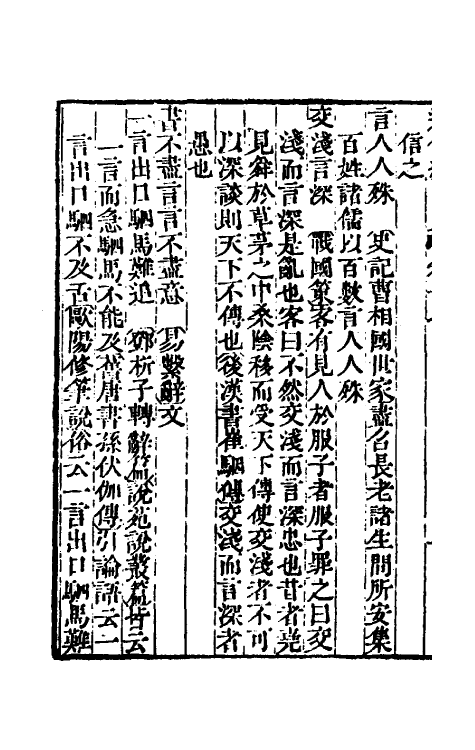 信之
言人人殊　史記曹相國世家盡召長老諸生問所安集
百姓諸儒以百數言人人殊
交淺言深　戰國策客有見人於服子者服子罪之曰交
淺而言深是亂也客曰不然交淺而言深忠也昔者堯
見舜於草茅之中桑陰移而受天下傳使交淺者不可
以深談則天下不傳也後漢書崔駰傳交淺而言深者
愚也
書不盡言言不盡意　易繫辭文
一言出口駟馬難追　鄧析子轉辭篇說苑說叢篇皆云
一言而急駟馬不能及舊唐書孫伏伽傳引論語云一
言出口駟不及舌歐陽修筆說俗云一言出口駟馬難